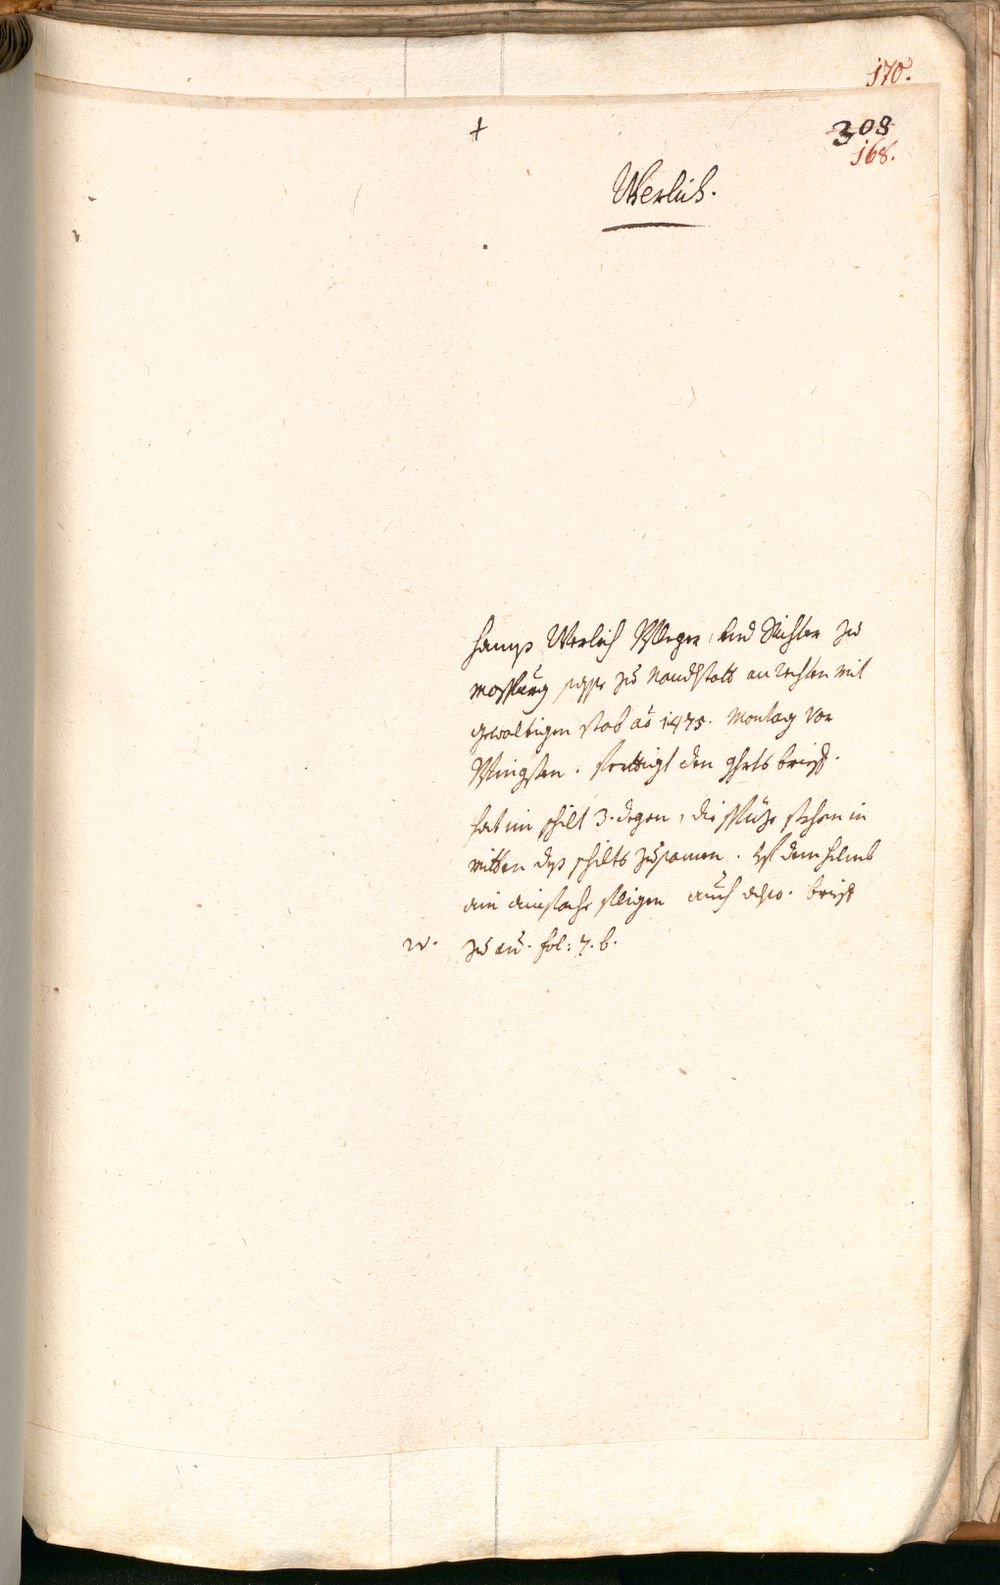 170.
+
308
168.
Werlich.
Hanns Werlich Pfleger und Richter zu
Mospurg sasse zu Nandlstatt an rechten mit
gewaltigen stab aõ 1475. Montag vor
Pfingsten. förttigt den grhts brieff.
hat im schilt 3. degen, die spütz stehen in
mitten dess schilts zusamen. Uf dem helmb
ain ainfache fligen auch dergl. brieff
W. zu aũ. fol: 7. b.